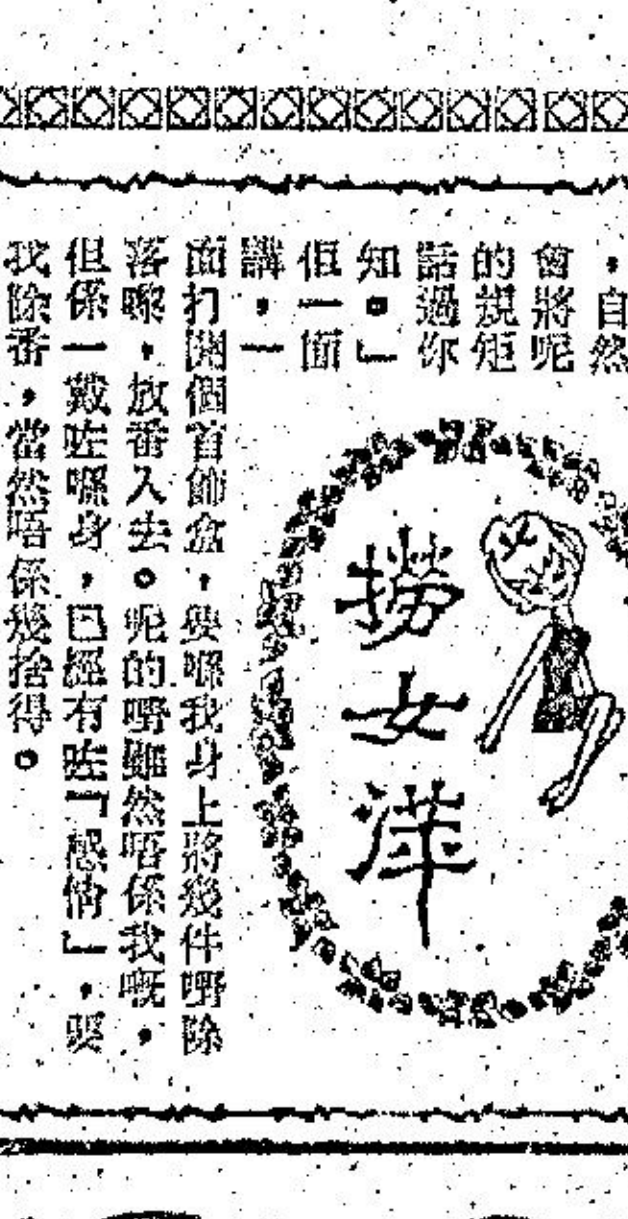 ，自然
會將呢
的規矩
話過你
知。」
佢一面
講，一
面打開個首飾盒，要喺我身上將幾件嘢除
落嚟，放番入去。呢的嘢雖然唔係我嘅，
但係一戴咗喺身，已經有咗「感情」，要
我除番，當然唔係幾捨得。
撈女洋